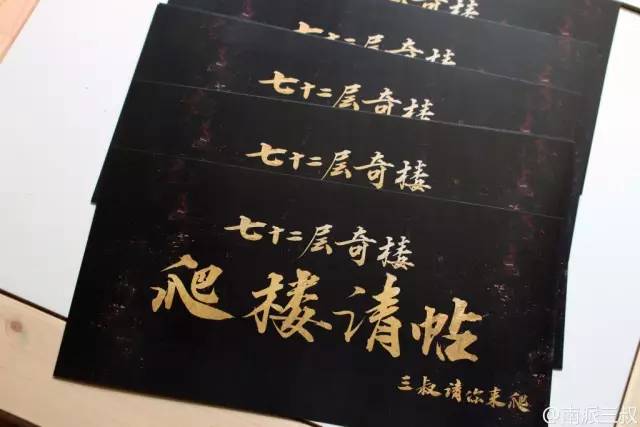 奇楼
七十二层奇楼
七十二层奇楼
七十二层奇楼
七十二层奇楼
爬楼请帖
三叔请你来爬
@南派三叔